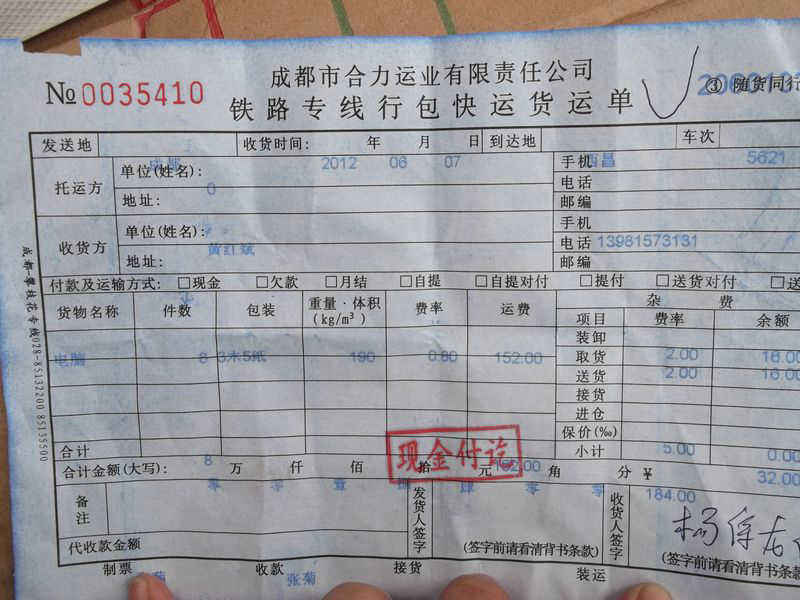 成都市合力运业有限责任公司
№0035410
铁路专线行包快运货运单
③ 随货同行
发送地 收货时间: 年 月 日 到达地 车次
成都 2012 06 07 西昌 5621
托运方 单位(姓名): 手机
0
地址: 电话
邮编
收货方 单位(姓名): 手机
黄红斌
地址: 电话 13981573131
邮编
付款及运输方式: □现金 □欠款 □月结 □自提 □自提对付 □提付 □送货对付
货物名称 件数 包装 重量·体积(kg/m³) 费率 运费 杂费
项目 费率 余额
装卸
电脑 8 3木5纸 190 0.80 152.00
取货 2.00 16.00
送货 2.00 16.00
接货
进仓
保价(‰)
合计 小计 5.00 0.00
现金付讫
合计金额(大写): 万 仟 佰 拾 元 角 分 ¥ 32.00
8 152.00
零 零 壹 捌 肆 零 零 184.00
备注
发货人签字
(签字前请看清背书条款)
收货人签字
(签字前请看清背书条款)
代收款金额
制票 收款 接货 装运
张菊
成都-攀枝花专线028-85132200 85135500